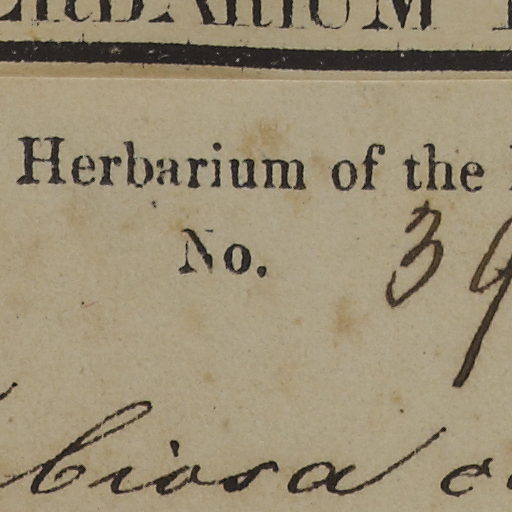 HERBARIUM
Herbarium of the
No. 39
biosa